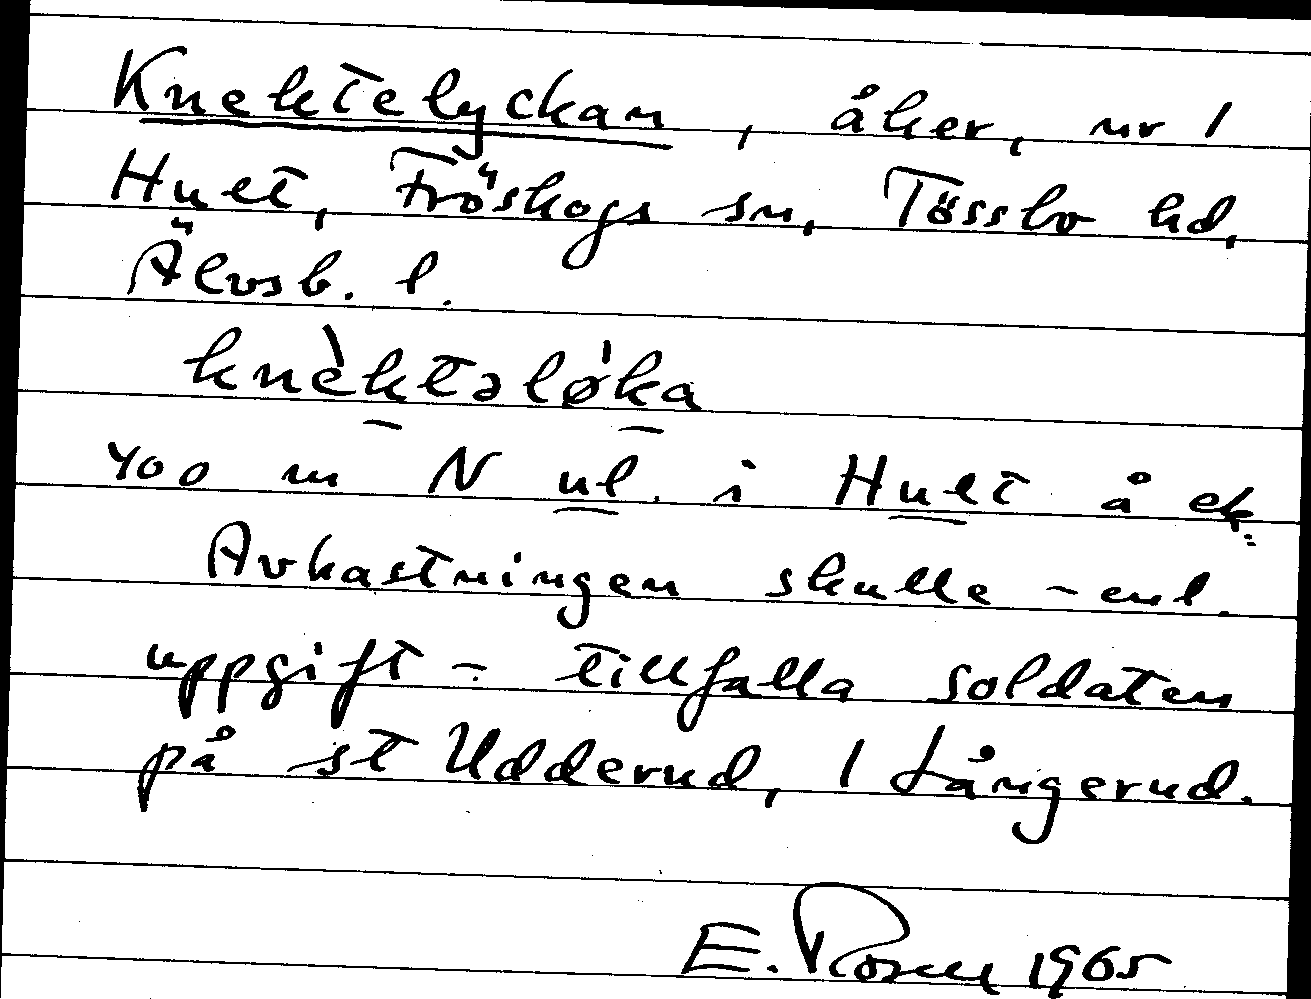 Knektelyckan, åker, nr 1
Hult, Fröskogs sn, Tössbo hd,
Älvsb. l.
knèktəlø̀ka
400 m N ul. i Hult å ek.
Avkastningen skulle - enl.
uppgift - tillfalla soldaten
på st Udderud, 1 Långerud.
E. Rosell 1965